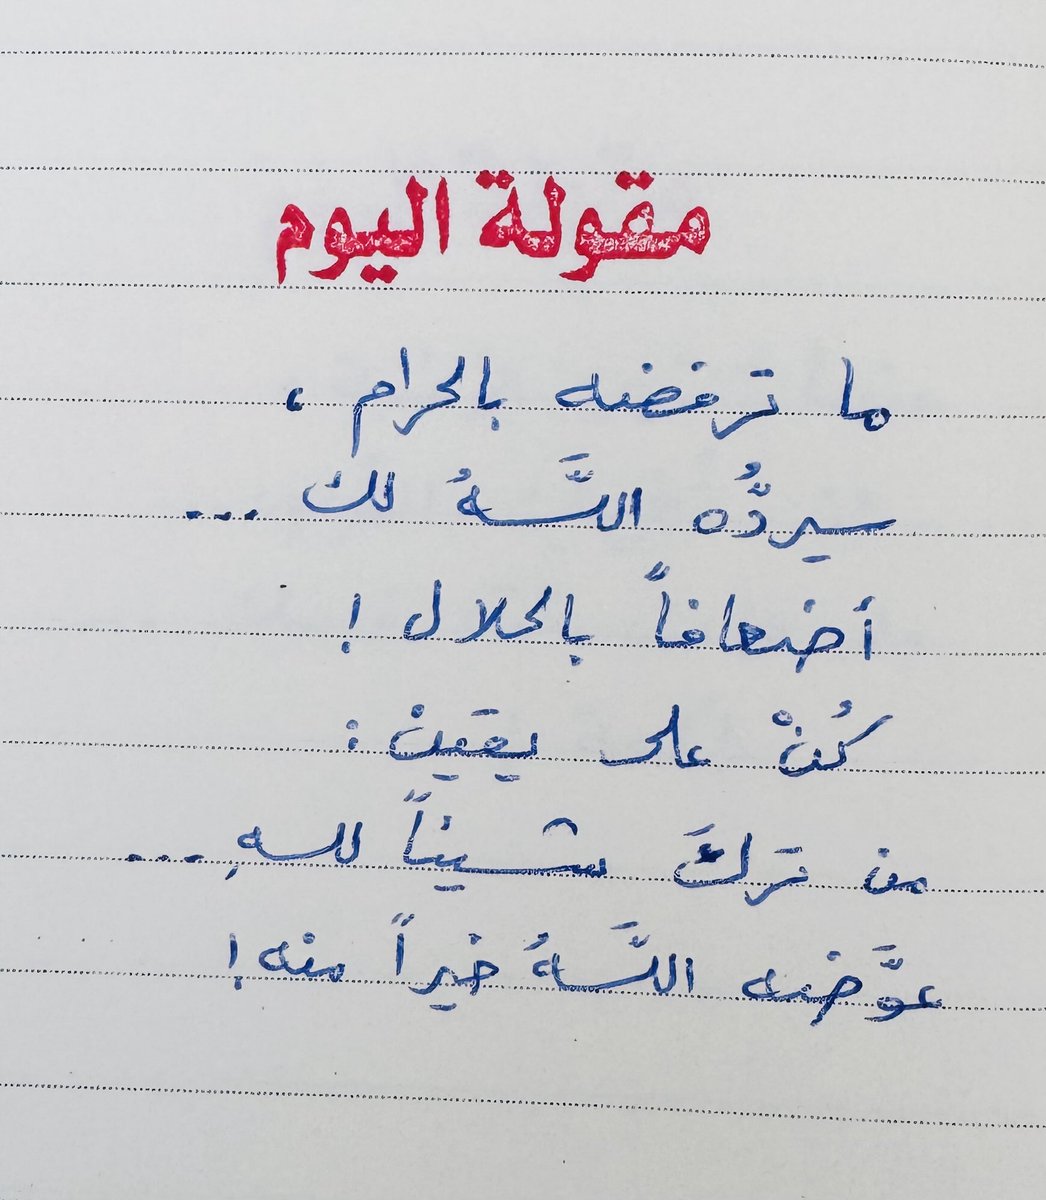 مقولة اليوم
ما ترفضه بالحرام ،
سيردُّه اللَّهُ لك ...
أضعافاً بالحلال !
كُنْ على يقَينْ :
من تركَ شيئاً للهِ ...
عوَّضه اللَّهُ خيراً منه !